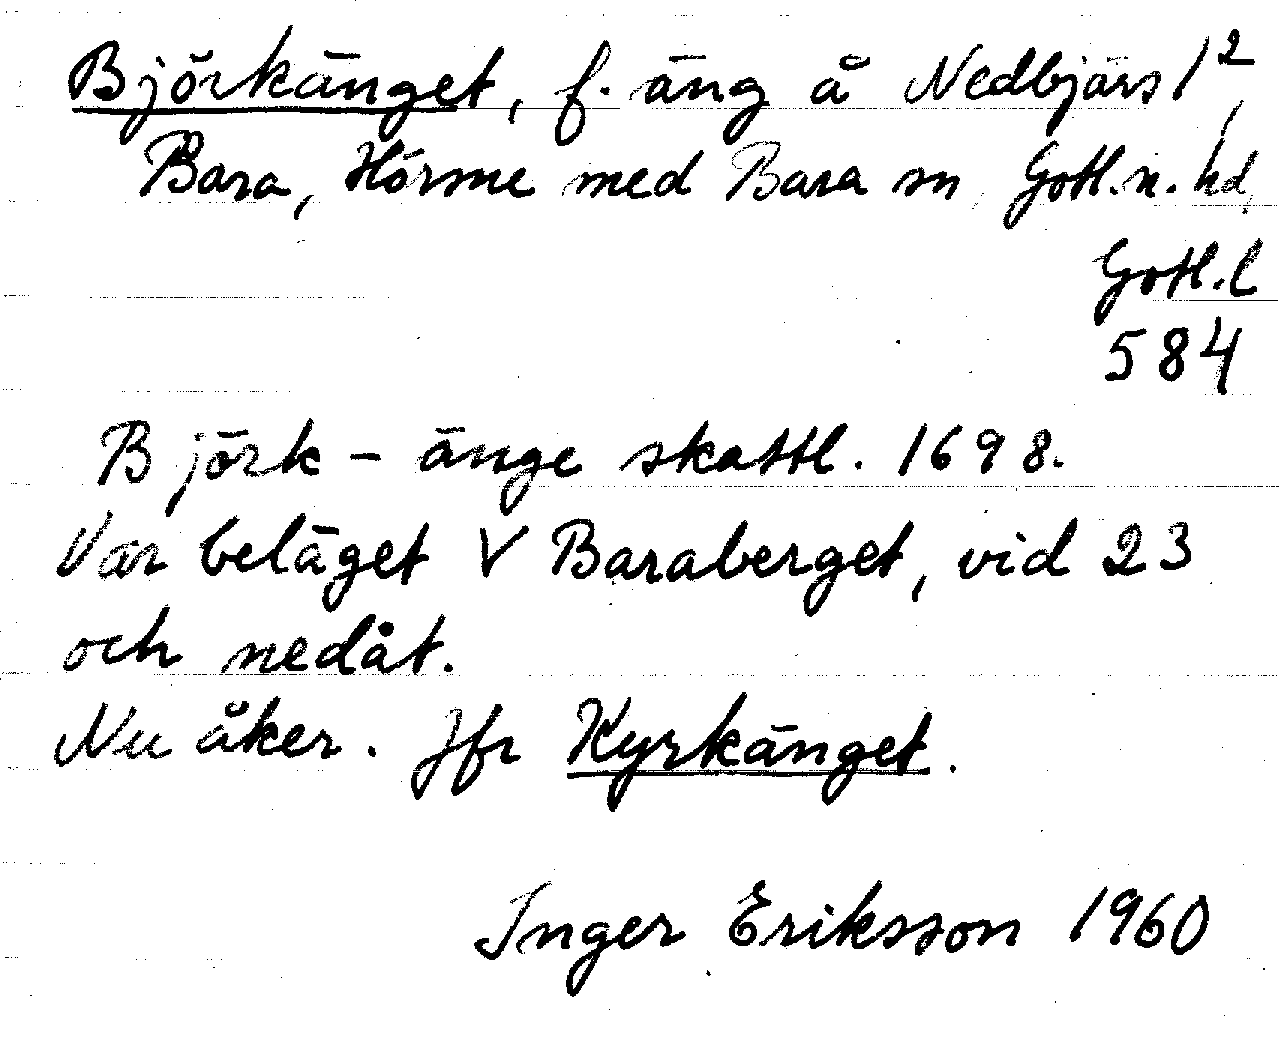 Björkänget, f. äng å Nedbjärs 1²,
Bara, Hörsne med Bara sn, Gotl. n. hd,
Gotl. l
584
Björk-änge skattl. 1698.
Var beläget V Baraberget, vid 23
och nedåt.
Nu åker. Jfr Kyrkänget.
Inger Eriksson 1960